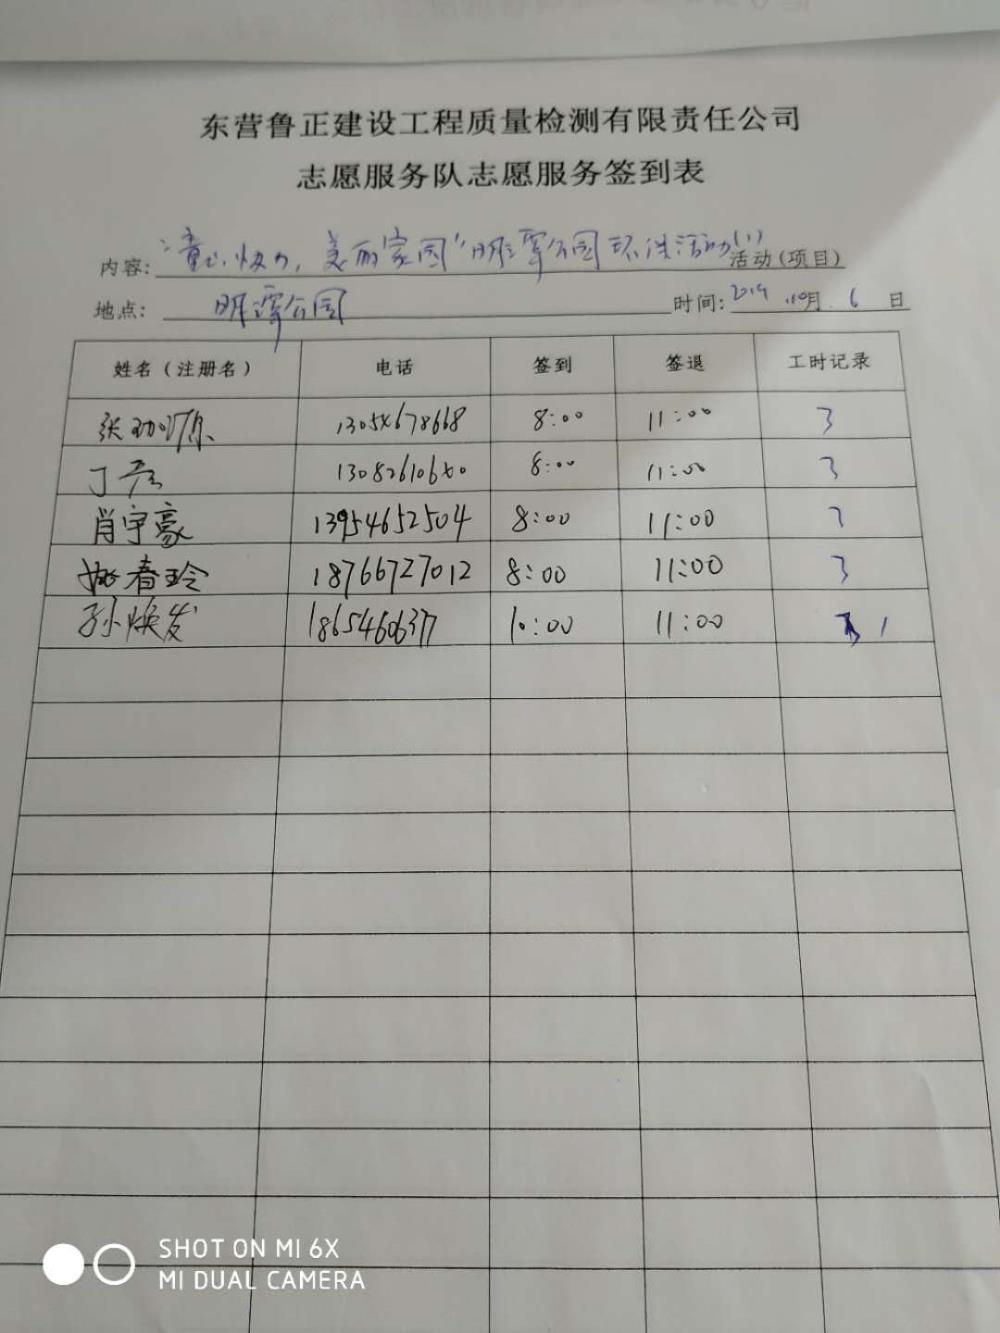 东营鲁正建设工程质量检测有限责任公司
志愿服务队志愿服务签到表
内容: 美丽家园"明潭公园环保活动(1) 活动(项目)
地点: 明潭公园 时间: 2019.10月6日
姓名(注册名) 电话 签到 签退 工时记录
张 8:00 11:00 3
丁 8:00 11:00 3
肖宇豪 13954652504 8:00 11:00 3
姚春玲 18766727012 8:00 11:00 3
孙焕发 10:00 11:00 1
SHOT ON MI 6X
MI DUAL CAMERA